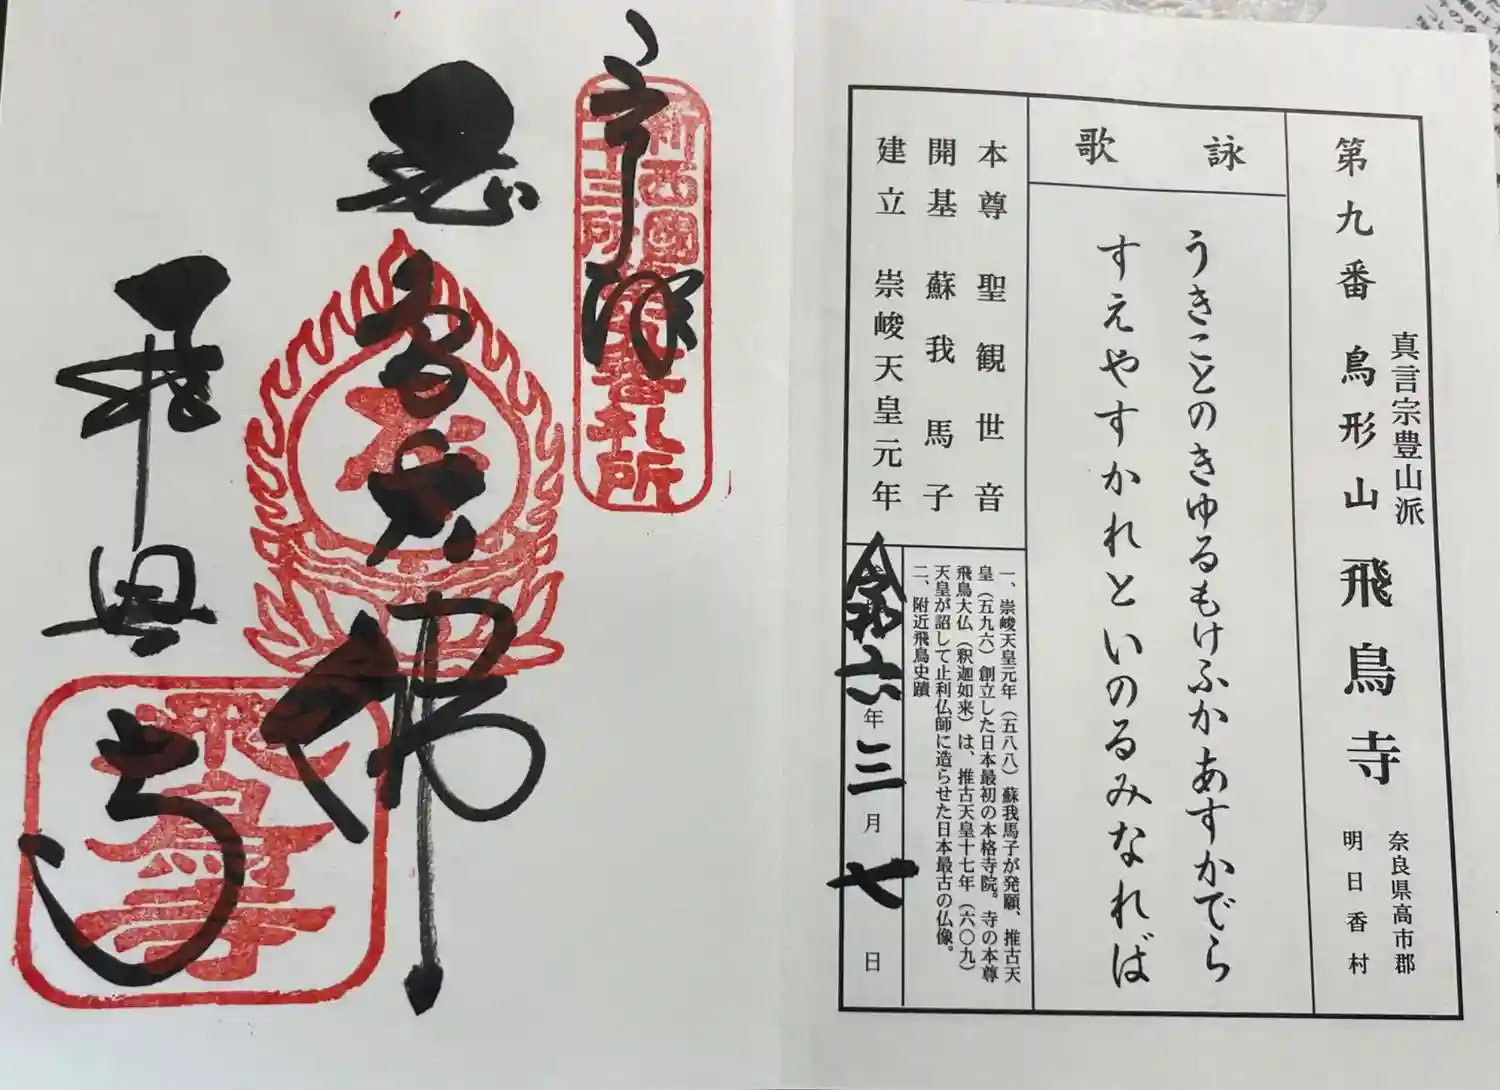 第九番 鳥形山 飛鳥寺
真言宗豊山派
奈良県高市郡
明日香村
詠歌
うきことのきゆるもけふかあすかでら
すえやすかれといのるみなれば
本尊 聖観世音
開基 蘇我馬子
建立 崇峻天皇元年
一、崇峻天皇元年(五八八)蘇我馬子が発願、推古天
皇(五九六)創立した日本最初の本格寺院。寺の本尊
飛鳥大仏(釈迦如来)は、推古天皇十七年(六〇九)
天皇が詔して止利仏師に造らせた日本最古の仏像。
二、附近飛鳥史蹟
令和六年三月七日
奉拝
新西國
三十三所
第九番札所
飛鳥寺
飛鳥寺